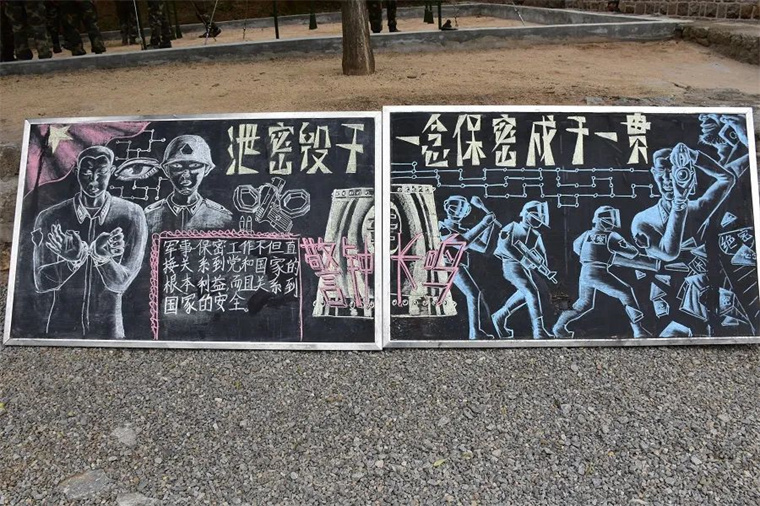 泄密毁于一念保密成于一贯
军事保密工作不但直
接关系到党和国家的
根本利益,而且关系到
国家的安全。
警钟长鸣
绝密